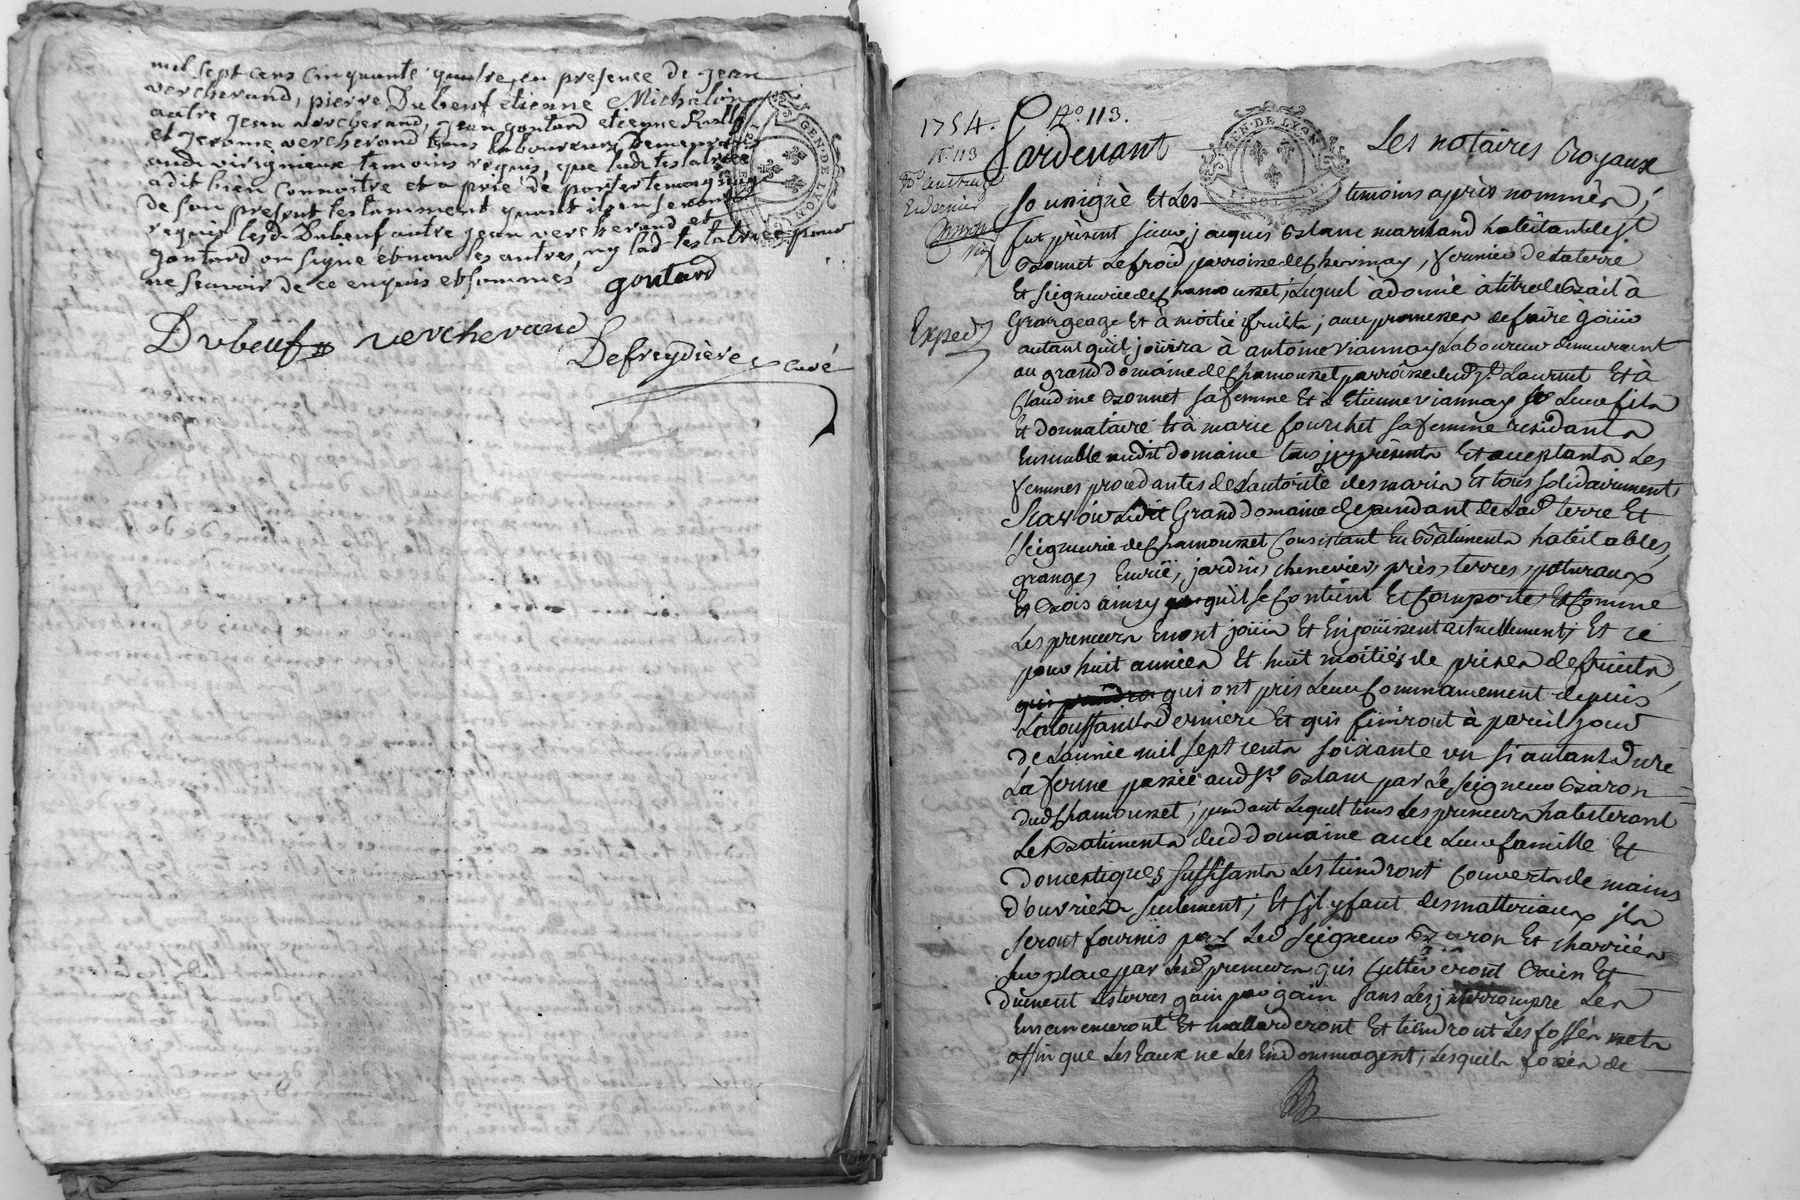 mil sept cens cinquante quatre, en presence de jean
vercherand, pierre Dubeuf etienne Michalon
autre jean vercherand, jean goutard etienne
et jerome vercherand tous laboureurs Demeurants
audt virignieux temoins requis, que ladt testatrice
a dit bien connoitre et a prié de porter temoignage
de son present testamment quant ils en seront
requis lesd. Dubeuf autre jean vercherand et
goutard on signé et non les autres, ny lad. testatrice pour
ne scavoir de ce enquis et sommés goutard
Dubeuf vercherand
Defreydière curé
1754. No. 113.
No. 113
Exped
GEN. DE LYON
GEN. DE LYON
Pardevant Les notaires Royaux
sousigné Et Les temoins après nommés,
fut présent sieur jacques Blanc marchand habitant de st
Bonnet Le froid, parroisse de Chevinay, fermier de La terre
Et seigneurie de Chamousset, Lequel à donné à titre de Bail à
Grangeage Et à moitié fruits, avec promesse de faire joüir
autant qu'il joüira à antoine viannay Laboureur demeurant
au grand domaine de Chamousset parroisse dud st. Laurent Et à
Claudine Bonnet sa femme Et à Etienne viannay Leur fils
Et donnataire Et à marie fouchet sa femme residants
Ensemble audit domaine tous jcy présents Et acceptants Les
femmes procedantes de L'autorité de Les maris Et tous solidairement
scavoir Ledit Grand domaine dependant de Lad. terre Et
seigneurie de Chamousset Consistant En Bâtiments habitables,
granges, Ecurie, jardin, chenevier, près, terres, paturaux
Et Bois ainsy qu'il se Contient Et Comporte, Et Comme
Les preneurs En ont joüi Et En joüissent actuellement, Et ce
pour huit années Et huit moitiés de prises de fruits,
qui ont pris Leur Commancement depuis
La toussaints derniere Et qui finiront à pareil jour
de L'année mil sept cents soixante un si autant dure
La ferme passée aud Sr. Blanc par Le seigneur Baron
dud Chamousset, pendant Lequel tems Les preneurs habiteront
Les Batiments dud domaine avec Leur famille Et
domestiques suffisants Les tiendront Couverts de mains
d'ouvriers seulement, Et s'il y faut des matteriaux jls
seront fournis par Led seigneur Baron Et charriés
sur place par Lesd. preneurs qui Cultiveront Bien Et
düement Les terres gain par gain sans Les jnterrompre Les
Ensemenceront Et Et tiendront Les fossés nets
affin que Les Eaux ne Les Endommagent, Lesquels fossés de